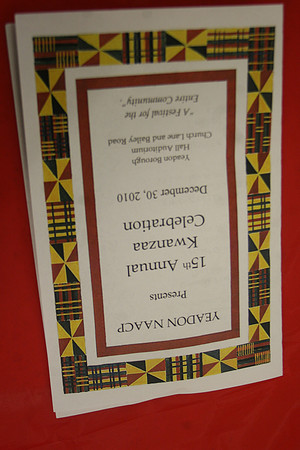 YEADON NAACP
Presents
15th Annual
Kwanzaa
Celebration
December 30, 2010
Yeadon Borough
Hall Auditorium
Church Lane and Bailey Road
"A Festival for the
Entire Community".